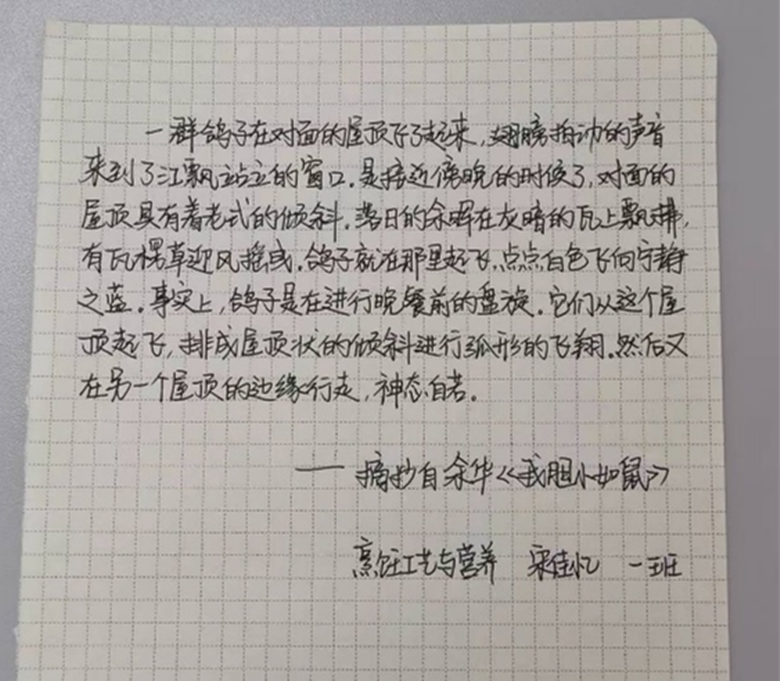 一群鸽子在对面的屋顶飞了起来，翅膀拍动的声音
来到了江飘站立的窗口．是接近傍晚的时候了，对面的
屋顶具有着老式的倾斜．落日的余晖在灰暗的瓦上飘拂，
有瓦楞草迎风摇曳．鸽子就在那里起飞，点点白色飞向宁静
之蓝．事实上，鸽子是在进行晚餐前的盘旋．它们从这个屋
顶起飞，排成屋顶状的倾斜进行弧形的飞翔．然后又
在另一个屋顶的边缘行走，神态自若。
—— 摘抄自余华《我胆小如鼠》
烹饪工艺与营养 宋佳忆 一班